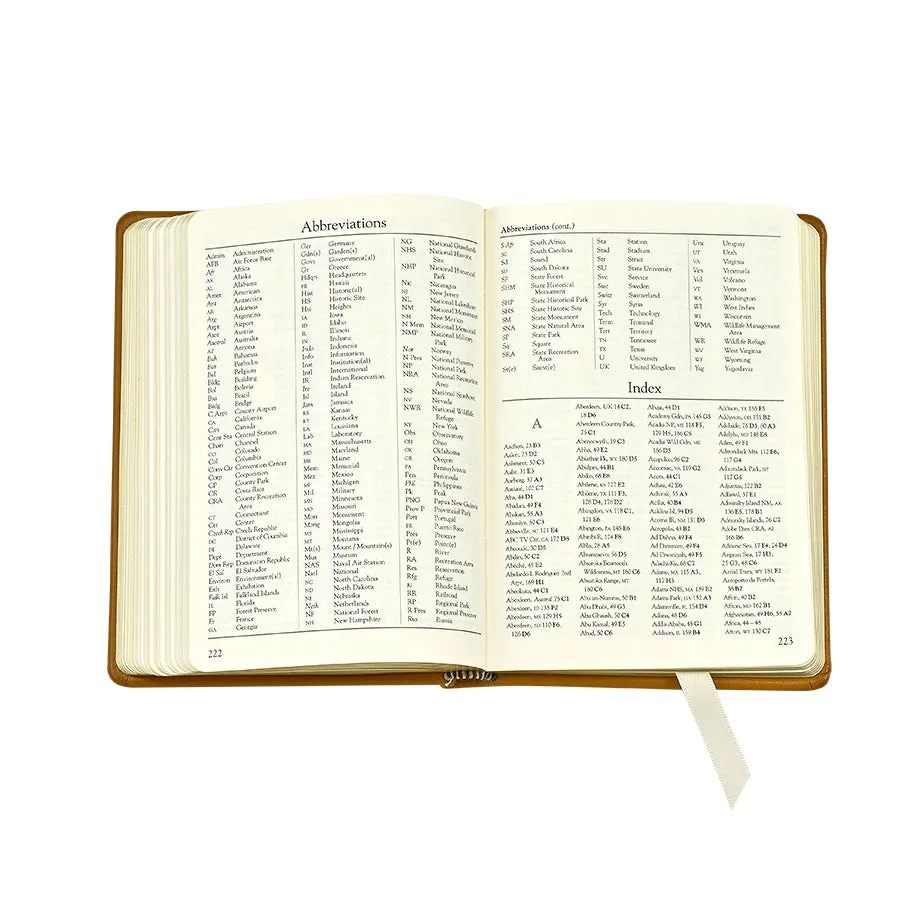 Abbreviations
Admin Administration
AFB Air Force Base
Afr Africa
AK Alaska
AL Alabama
Amer American
Ant Antarctica
AR Arkansas
Arg Argentina
Arpt Airport
Aust Austria
Austral Australia
AZ Arizona
Bah Bahamas
Bar Barbados
Bel Belgium
Bldg Building
Bol Bolivia
Bra Brazil
Brdg Bridge
C Arpt County Airport
CA California
Can Canada
Cent Sta Central Station
Chan Channel
CO Colorado
Col Columbia
Conv Ctr Convention Center
Corp Corporation
CP County Park
CR Costa Rica
CRA County Recreation
Area
CT Connecticut
Ctr Center
Czech Rep Czech Republic
DC District of Columbia
DE Delaware
Dept Department
Dom Rep Dominican Republic
El Sal El Salvador
Environ Environment(al)
Exh Exhibition
Falk Isl Falkland Islands
FL Florida
FP Forest Preserve
Fr France
GA Georgia
Ger Germany
Gdn(s) Garden(s)
Govt Government(al)
Gr Greece
Hdqrs Headquarters
HI Hawaii
Hist Historic(al)
HS Historic Site
Hts Heights
IA Iowa
ID Idaho
IL Illinois
IN Indiana
Indo Indonesia
Info Information
Inst Institution(al)
Intl International
IR Indian Reservation
Ire Ireland
Isl Island
Jam Jamaica
KS Kansas
KY Kentucky
LA Louisiana
Lab Laboratory
MA Massachusetts
MD Maryland
ME Maine
Mem Memorial
Mex Mexico
MI Michigan
Mil Military
MN Minnesota
MO Missouri
Mon Monument
Mong Mongolia
MS Mississippi
MT Montana
Mt(s) Mount / Mountain(s)
Mus Museum
NAS Naval Air Station
Natl National
NC North Carolina
ND North Dakota
NE Nebraska
Neth Netherlands
NF National Forest
NH New Hampshire
NG National Grasslands
NHS National Historic
Site
NHP National Historical
Park
Nic Nicaragua
NJ New Jersey
NL National Lakeshore
NM National Monument
NM New Mexico
N Mem National Memorial
NMP National Military
Park
Nor Norway
N Pres National Preserve
NP National Park
NRA National Recreation
Area
NS National Seashore
NV Nevada
NWR National Wildlife
Refuge
NY New York
Obs Observatory
OH Ohio
OK Oklahoma
OR Oregon
PA Pennsylvania
Pen Peninsula
Phil Philippines
Pk Peak
PNG Papua New Guinea
Prov P Provincial Park
Port Portugal
PR Puerto Rico
Pres Preserve
Pt(e) Point(e)
R River
RA Recreation Area
Res Reservation
Rfg Refuge
RI Rhode Island
RR Railroad
RP Regional Park
R Pres Regional Preserve
Rus Russia
222
Abbreviations (cont.)
S Afr South Africa
SC South Carolina
Sd Sound
SD South Dakota
SF State Forest
SHM State Historical
Monument
SHP State Historical Park
SHS State Historic Site
SM State Monument
SNA State Natural Area
SP State Park
Sq Square
SRA State Recreation
Area
St(e) Saint(e)
Sta Station
Stad Stadium
Str Strait
SU State University
Sve Service
Swe Sweden
Switz Switzerland
Syr Syria
Tech Technology
Term Terminal
Terr Territory
TN Tennessee
TX Texas
U University
UK United Kingdom
Uru Uruguay
UT Utah
VA Virginia
Ven Venezuela
Vol Volcano
VT Vermont
WA Washington
WI West Indies
WI Wisconsin
WMA Wildlife Management
Area
WR Wildlife Refuge
WV West Virginia
WY Wyoming
Yug Yugoslavia
Index
A
Aachen, 23 B3
Aalen, 23 D2
Aalsmeer, 50 C5
Aalst, 31 E3
Aarborg, 37 A3
Aba, 44 D1
Abadan, 49 F4
Abakan, 55 A3
Abbeville, SC 121 E4
ABC TV Ctr, CA 172 D8
Abéché, 45 E2
Abelardo L Rodriguez Intl
Arpt, 169 H1
Aberdeen, ID 135 F2
Aberdeen, MS 129 H5
Aberdeen, SD 110 F6,
126 D6
Aberdeen, UK 18 C2,
18 D6
Aberdeen Country Park,
75 C1
Abergswyth, 19 C3
Abha, 49 E2
Abiathar Pk, WY 180 D5
Abidjan, 44 B1
Abiko, 68 E8
Abilene, KS 127 E2
Abilene, TX 111 F3,
128 D4, 176 D2
Abingdon, VA 118 C1,
121 E6
Absaroka Beartooth
Wilderness, MT 180 C6
Absaroka Range, MT
180 C6
Abu Dhabi, 49 G3
Abu Ghaush, 50 C4
Abu Kamal, 49 E5
Abud, 50 C6
Abuja, 44 D1
Academy Gdn, PA 145 G5
Acadia NP, ME 114 F5,
129 H5, 186 C5
Acadia Wild Gdn, ME
186 D5
Acapulco, 96 C2
Accomac, VA 119 G2
Accra, 44 C1
Achao, 42 E6
Achinsk, 55 A3
Acilia, 40 B4
Acropolis, 43 B2
Ad Dahna, 49 F4
Ad Dammam, 49 F4
Adachi-Ku, 68 C7
Adams NHS, MA 139 E2
Adams Park, GA 152 A3
Adamsville, PA 154 D4
Adana, 48 D6
Addis Ababa, 45 G1
Addison, IL 159 B4
Addison, TX 165 E5
Addyston, OH 151 B2
Adelaide, 76 D3, 80 A3
Adelphi, MD 148 E8
Aden, 49 F1
Adirondack Mts, 112 E6,
117 G4
Adirondack Park, NY
117 G5
Adjuntas, 122 B2
Adlavad, 37 E1
Admiralty Islands, 76 C2
Adobe Dam CRA, AZ
168 B6
Adriatic Sea, 17 F4, 24 D4
Aegean Sea, 17 H3,
25 G3, 48 C6
Aerial Tram, WY 181 F2
Aeroporto da Portela,
38 B7
Afghanistan, 49 H6, 55 A7
Africa, 44 – 45
Afton, WY 130 C7
223